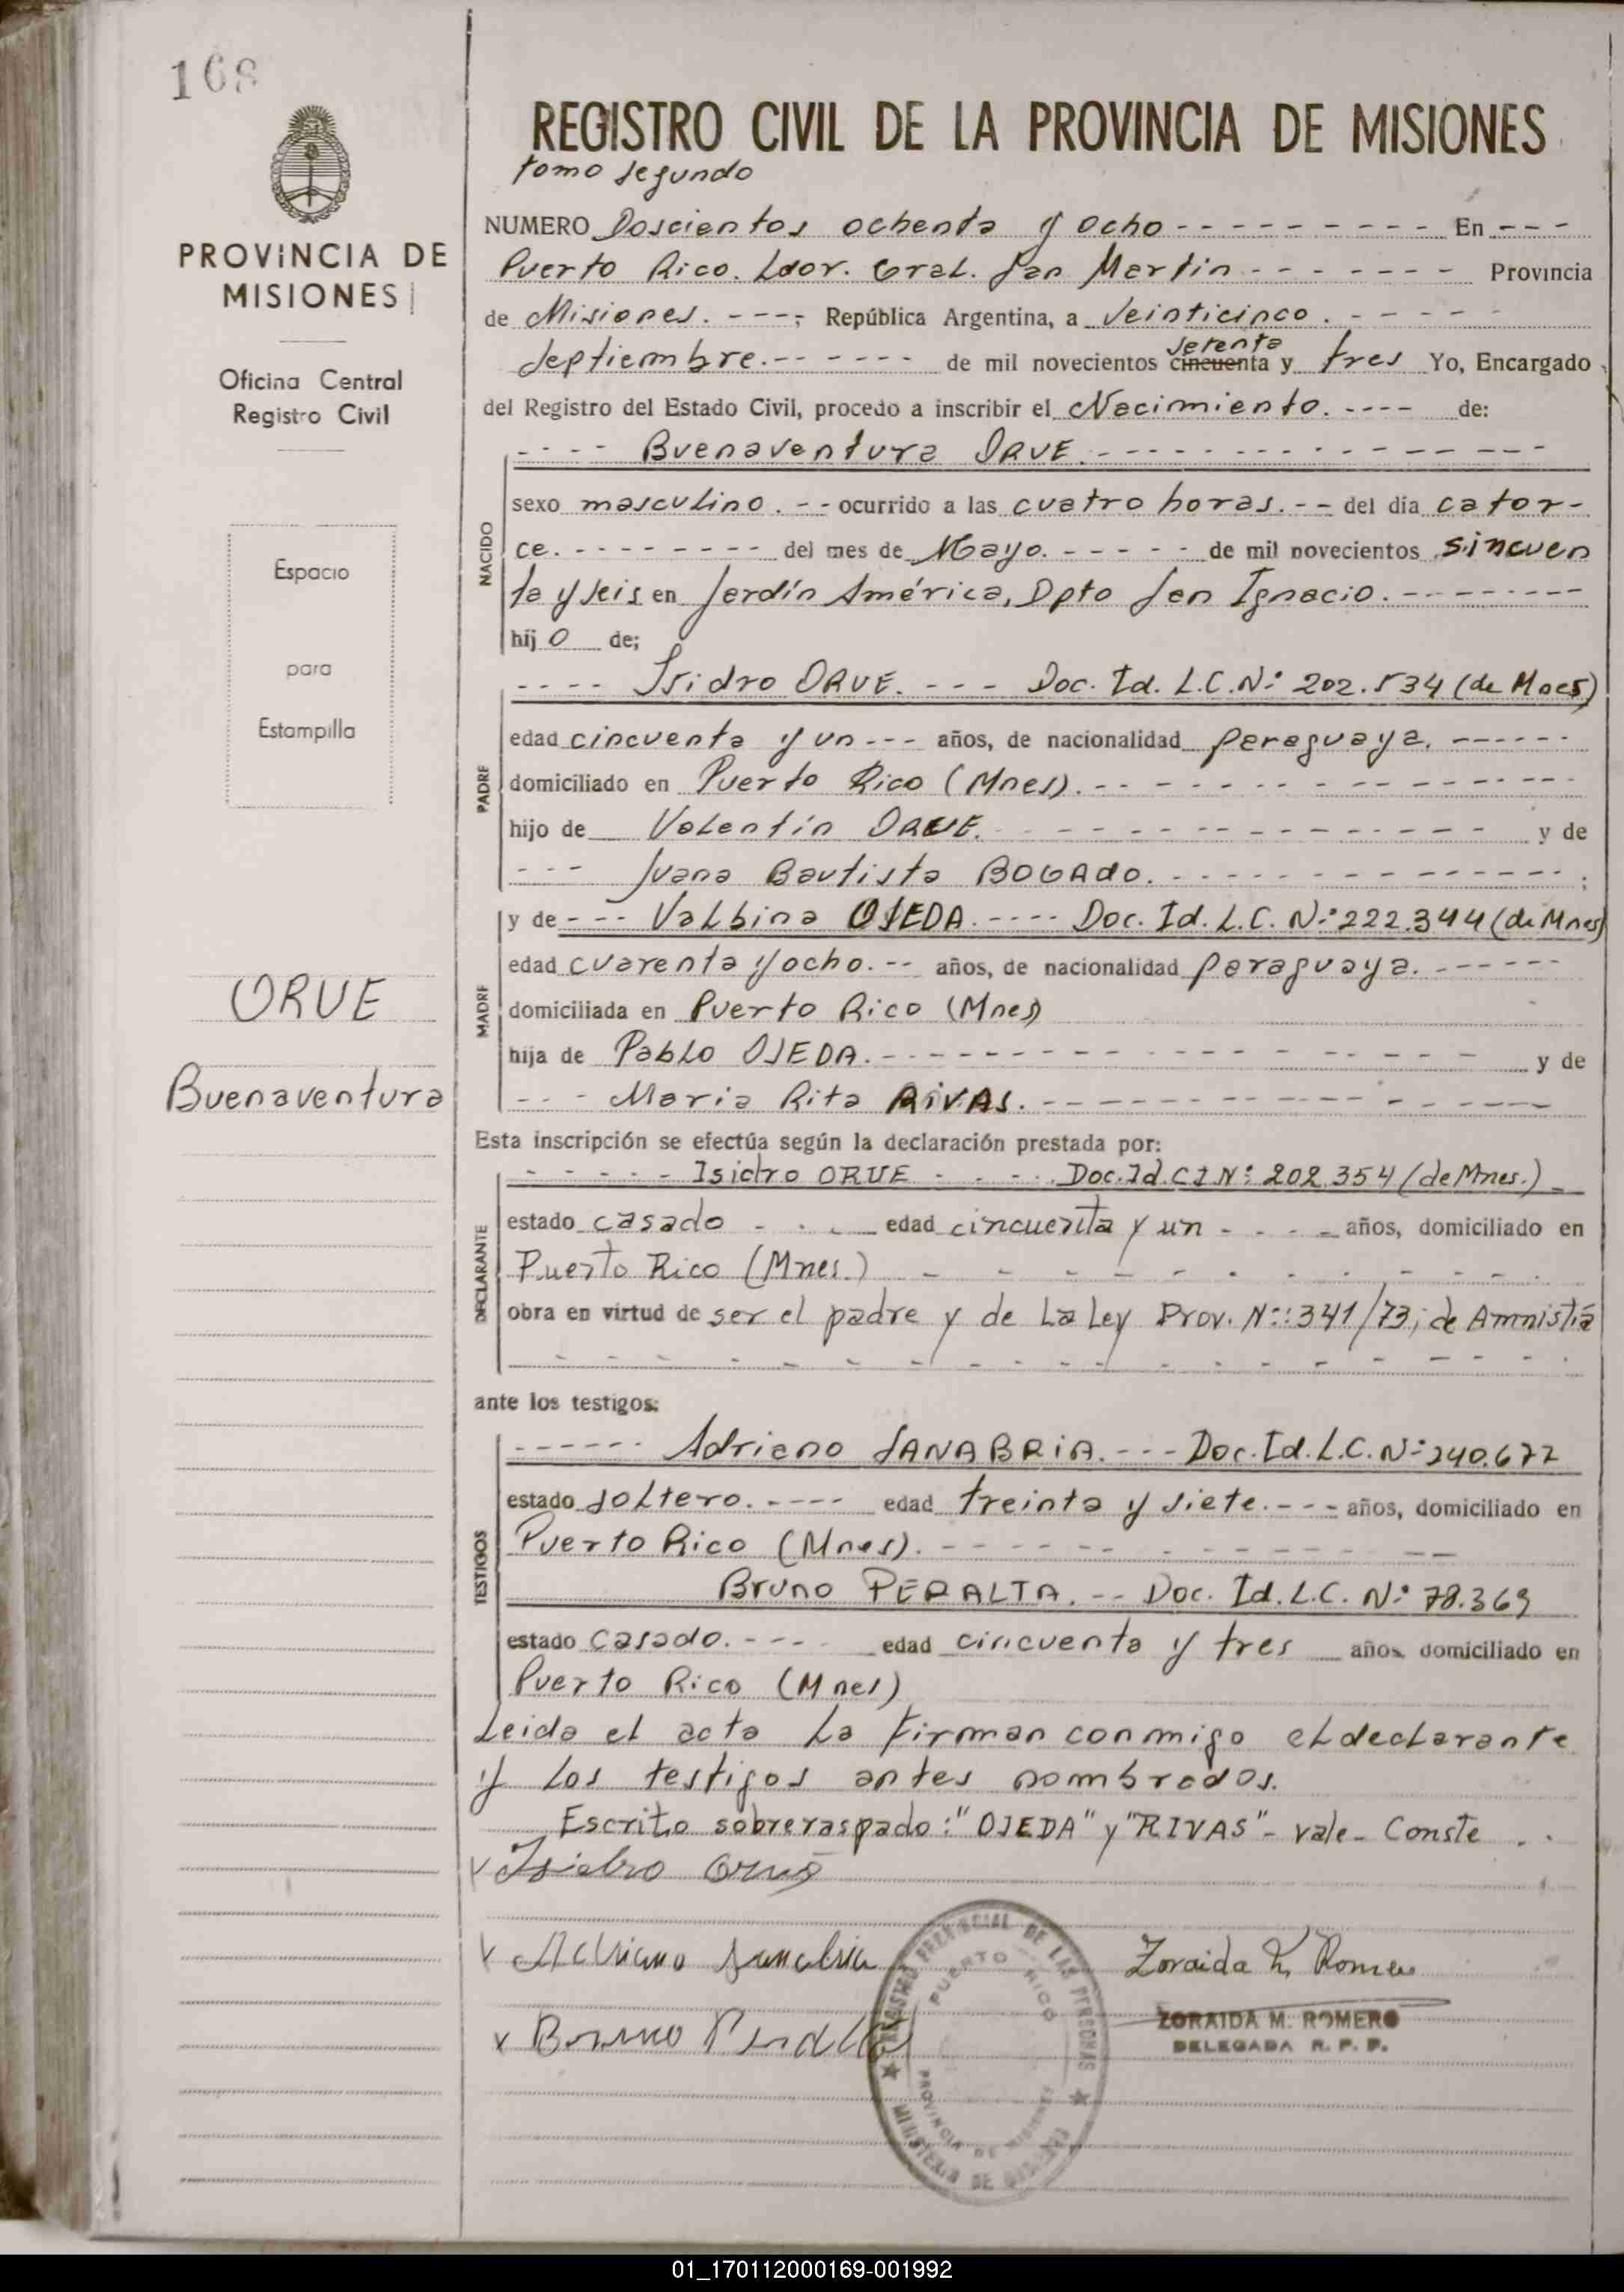 168
PROVINCIA DE
MISIONES
Oficina Central
Registro Civil
Espacio
para
Estampilla
ORVE
Buenaventura
REGISTRO CIVIL DE LA PROVINCIA DE MISIONES
tomo segundo
NUMERO Doscientos ochenta y ocho - - - - - - - - - En - - -
Puerto Rico. Ldor. Gral. San Martin - - - - - - - Provincia
de Misiones. - - -; República Argentina, a Veinticinco. - - - - -
Septiembre. - - - - - - - de mil novecientos cincuenta setenta y tres Yo, Encargado
del Registro del Estado Civil, procedo a inscribir el Nacimiento. - - - - de:
- - - - Buenaventura ORVE. - - - - - - - - - - - - - -
NACIDO
sexo masculino. - - ocurrido a las cuatro horas. - - del día cator-
ce. - - - - - - - - del mes de Mayo. - - - - - de mil novecientos sincuen
ta y seis en Jardín América, Dpto San Ignacio. - - - - - - - - -
hij o de;
- - - - Isidro ORVE. - - - Doc. Id. L.C. N: 202.534 (de Mnes)
PADRE
edad cincuenta y un - - - años, de nacionalidad paraguaya. - - - - - -
domiciliado en Puerto Rico (Mnes). - - - - - - - - - - - - - -
hijo de Valentín ORVE. - - - - - - - - - - - - - y de
- - - Juana Bautista BOGADO. - - - - - - - - - - - - - ;
MADRE
y de - - - Valbina OJEDA. - - - - Doc. Id. L.C. N:º 222.344 (de Mnes)
edad cuarenta y ocho. - - años, de nacionalidad paraguaya. - - - - - -
domiciliada en Puerto Rico (Mnes)
hija de Pablo OJEDA. - - - - - - - - - - - - - - - - y de
- - - Maria Rita RIVAS. - - - - - - - - - - - - - -
Esta inscripción se efectúa según la declaración prestada por:
- - - - - Isidro ORVE - - - - Doc. Id. C I N: 202.354 (de Mnes.) -
DECLARANTE
estado casado - - - edad cincuenta y un - - - - años, domiciliado en
Puerto Rico (Mnes.) - - - - - - - - - - - - -
obra en virtud de ser el padre y de La Ley Prov. N:: 341/73; de Amnistía
- - - - - - - - - - - - - - - - - - -
ante los testigos:
- - - - - - Adriano SANABRIA. - - - Doc. Id. L.C. N: 240.677
TESTIGOS
estado soltero. - - - - edad treinta y siete. - - - años, domiciliado en
Puerto Rico (Mnes). - - - - - - - - - - - - -
Bruno PERALTA. - - Doc. Id. L.C. N: 78.369
estado casado. - - - - edad cincuenta y tres años, domiciliado en
Puerto Rico (Mnes)
Leida el acta La firman conmigo el declarante
y Los testigos antes nombrados.
Escrito sobreraspado: "OJEDA" y "RIVAS" - vale - Conste . .
Isidro Orué
Adriano Sanabria
Bruno Peralta
REGISTRO PROVINCIAL DE LAS PERSONAS
PUERTO RICO
PROVINCIA DE MISIONES
MINISTERIO DE
Zoraida M. Romero
ZORAIDA M. ROMERO
DELEGADA R. P. P.
01_170112000169-001992